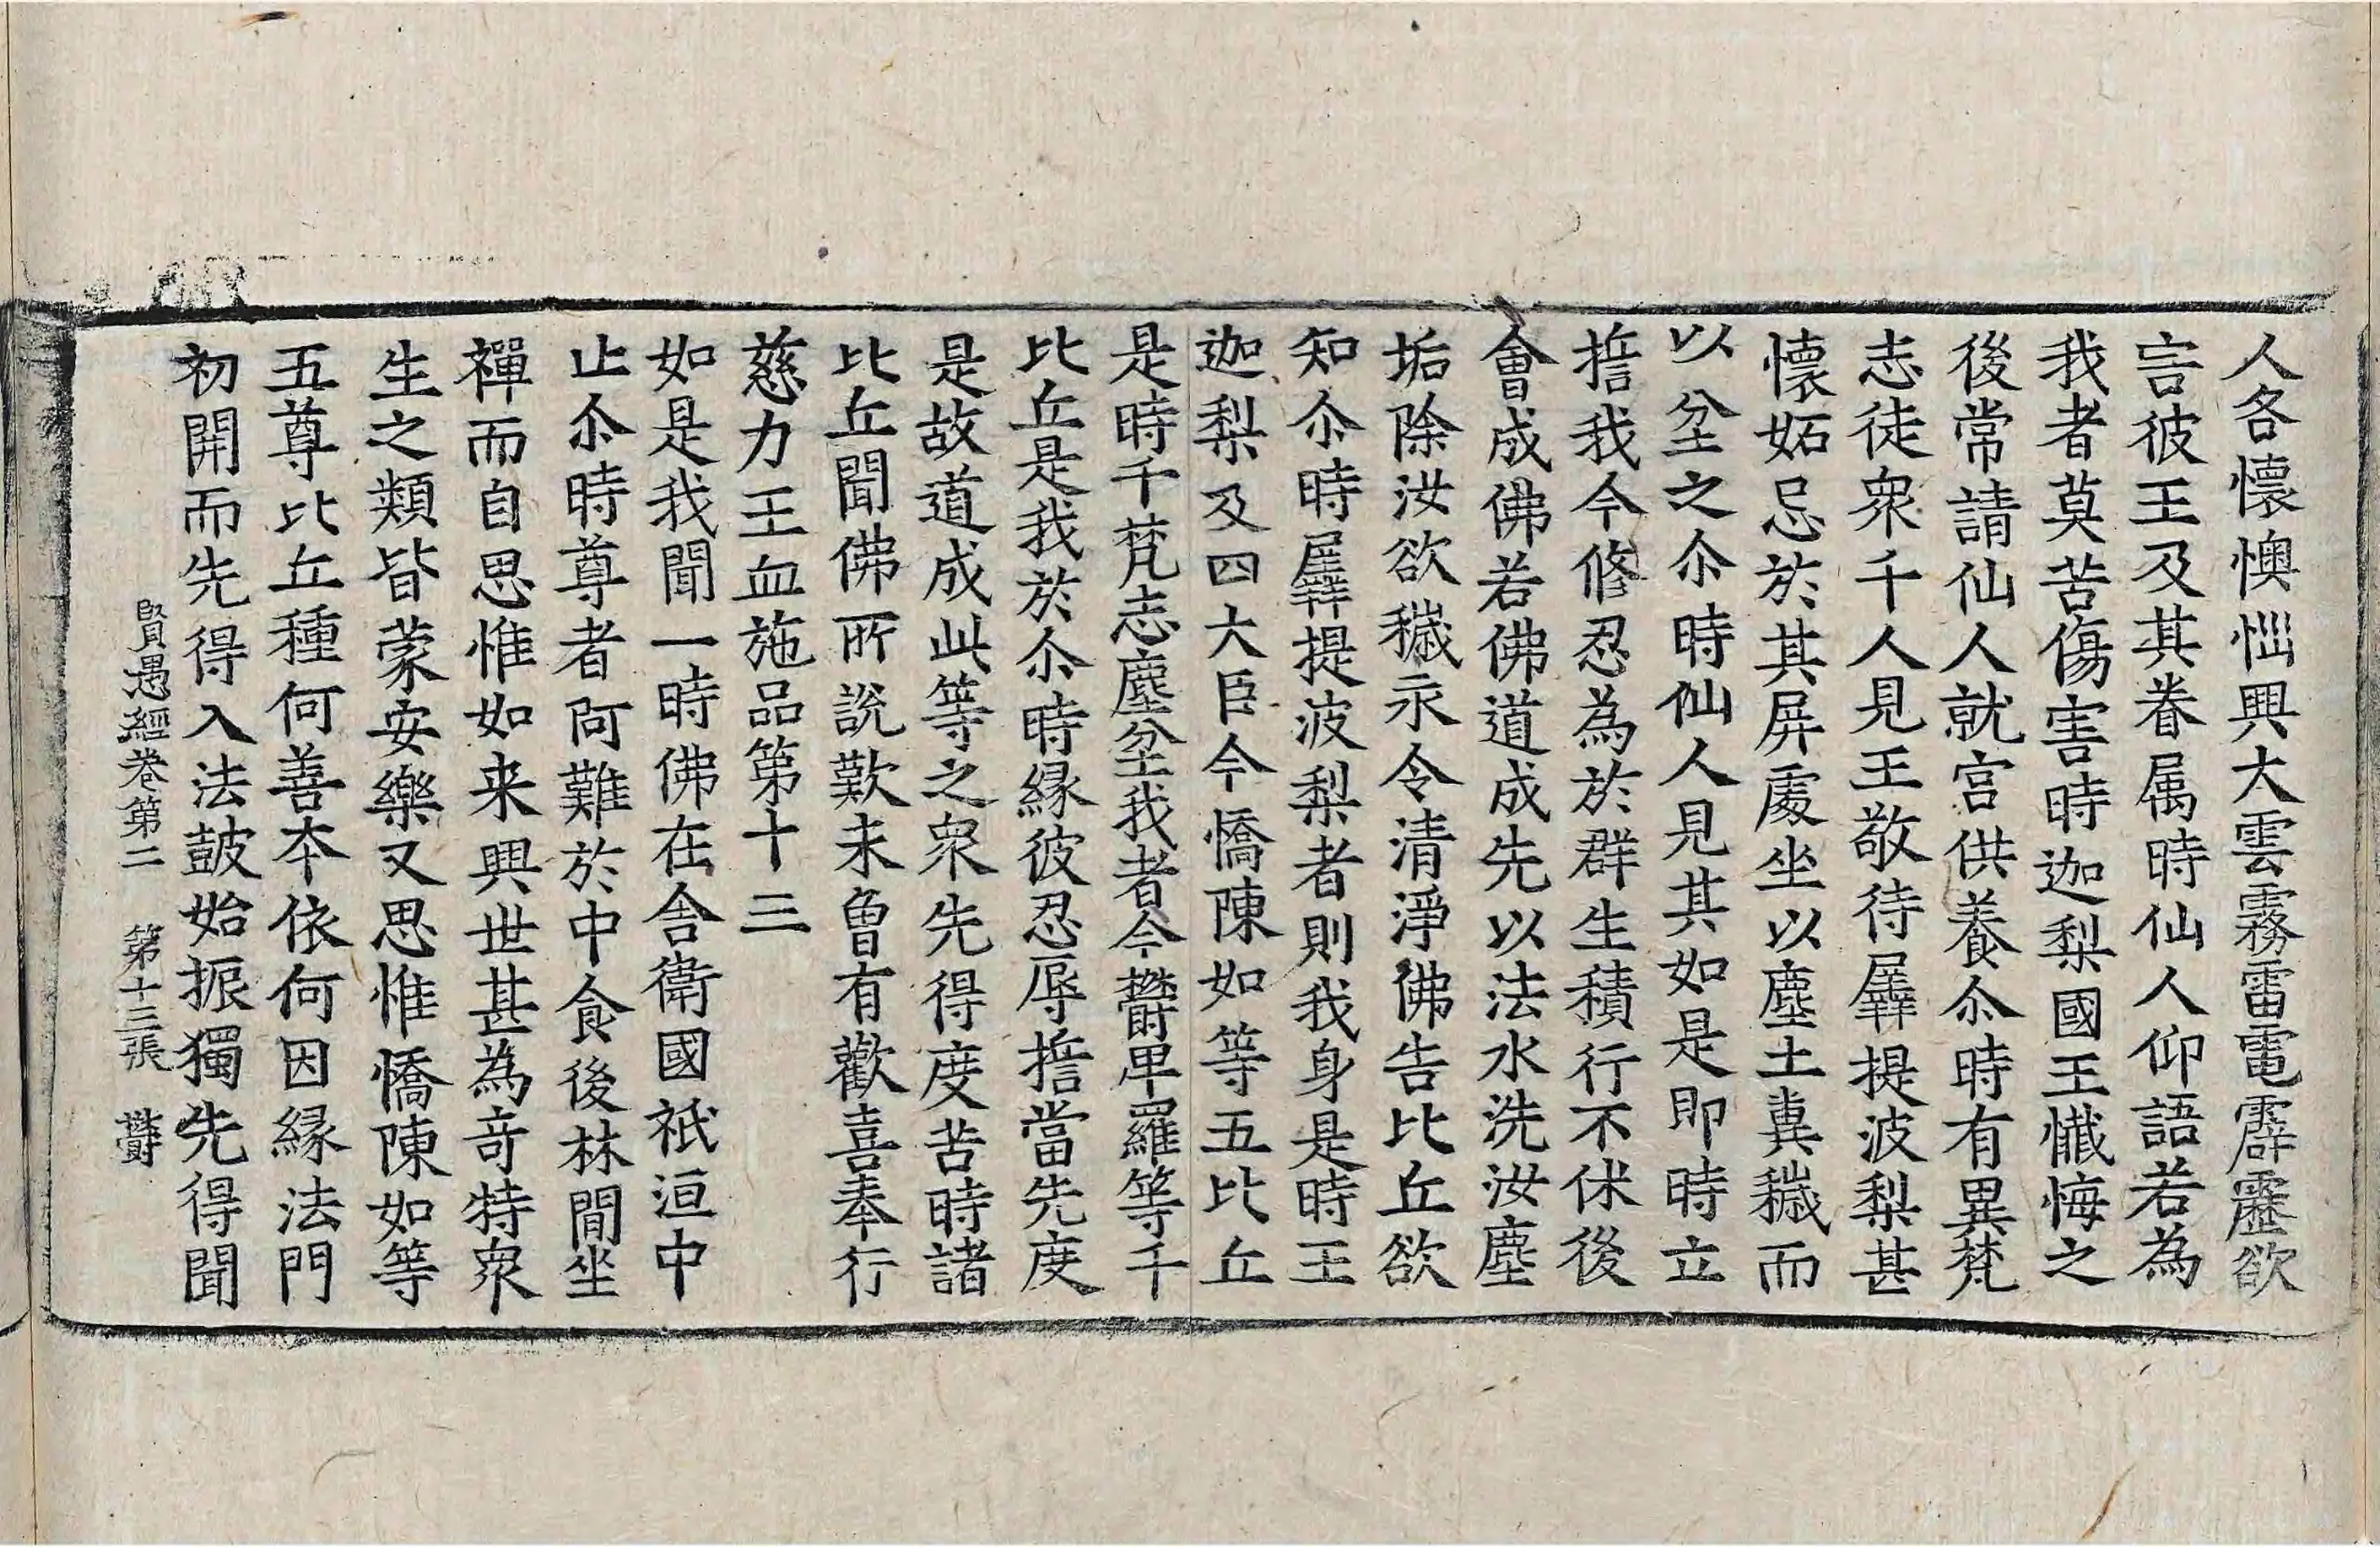 人各懷懊惱興大雲霧雷電霹靂欲
害彼王及其眷属時仙人仰語若為
我者莫苦傷害時迦梨國王懺悔之
後常請仙人就宫供養尒時有異梵
志徒衆千人見王敬待羼提波梨甚
懷妬忌於其屏處坐以塵土糞穢而
以坌之尒時仙人見其如是即時立
誓我今修忍為於群生積行不休後
會成佛若佛道成先以法水洗汝塵
垢除汝欲穢永令清淨佛告比丘欲
知尒時羼提波梨者則我身是時王
迦梨及四大臣今憍陳如等五比丘
是時千梵志塵坌我者今欝卑羅等千
比丘是我於尒時縁彼忍辱誓當先度
是故道成此等之衆先得度苦時諸
比丘聞佛所說歎未曾有歡喜奉行
慈力王血施品第十三
如是我聞一時佛在舎衛國祇洹中
止尒時尊者阿難於中食後林間坐
禪而自思惟如来興世甚為竒特衆
生之類皆蒙安樂又思惟憍陳如等
五尊比丘種何善夲依何因縁法門
初開而先得入法鼓始振獨先得聞
賢愚經卷第二 第十三張 欝